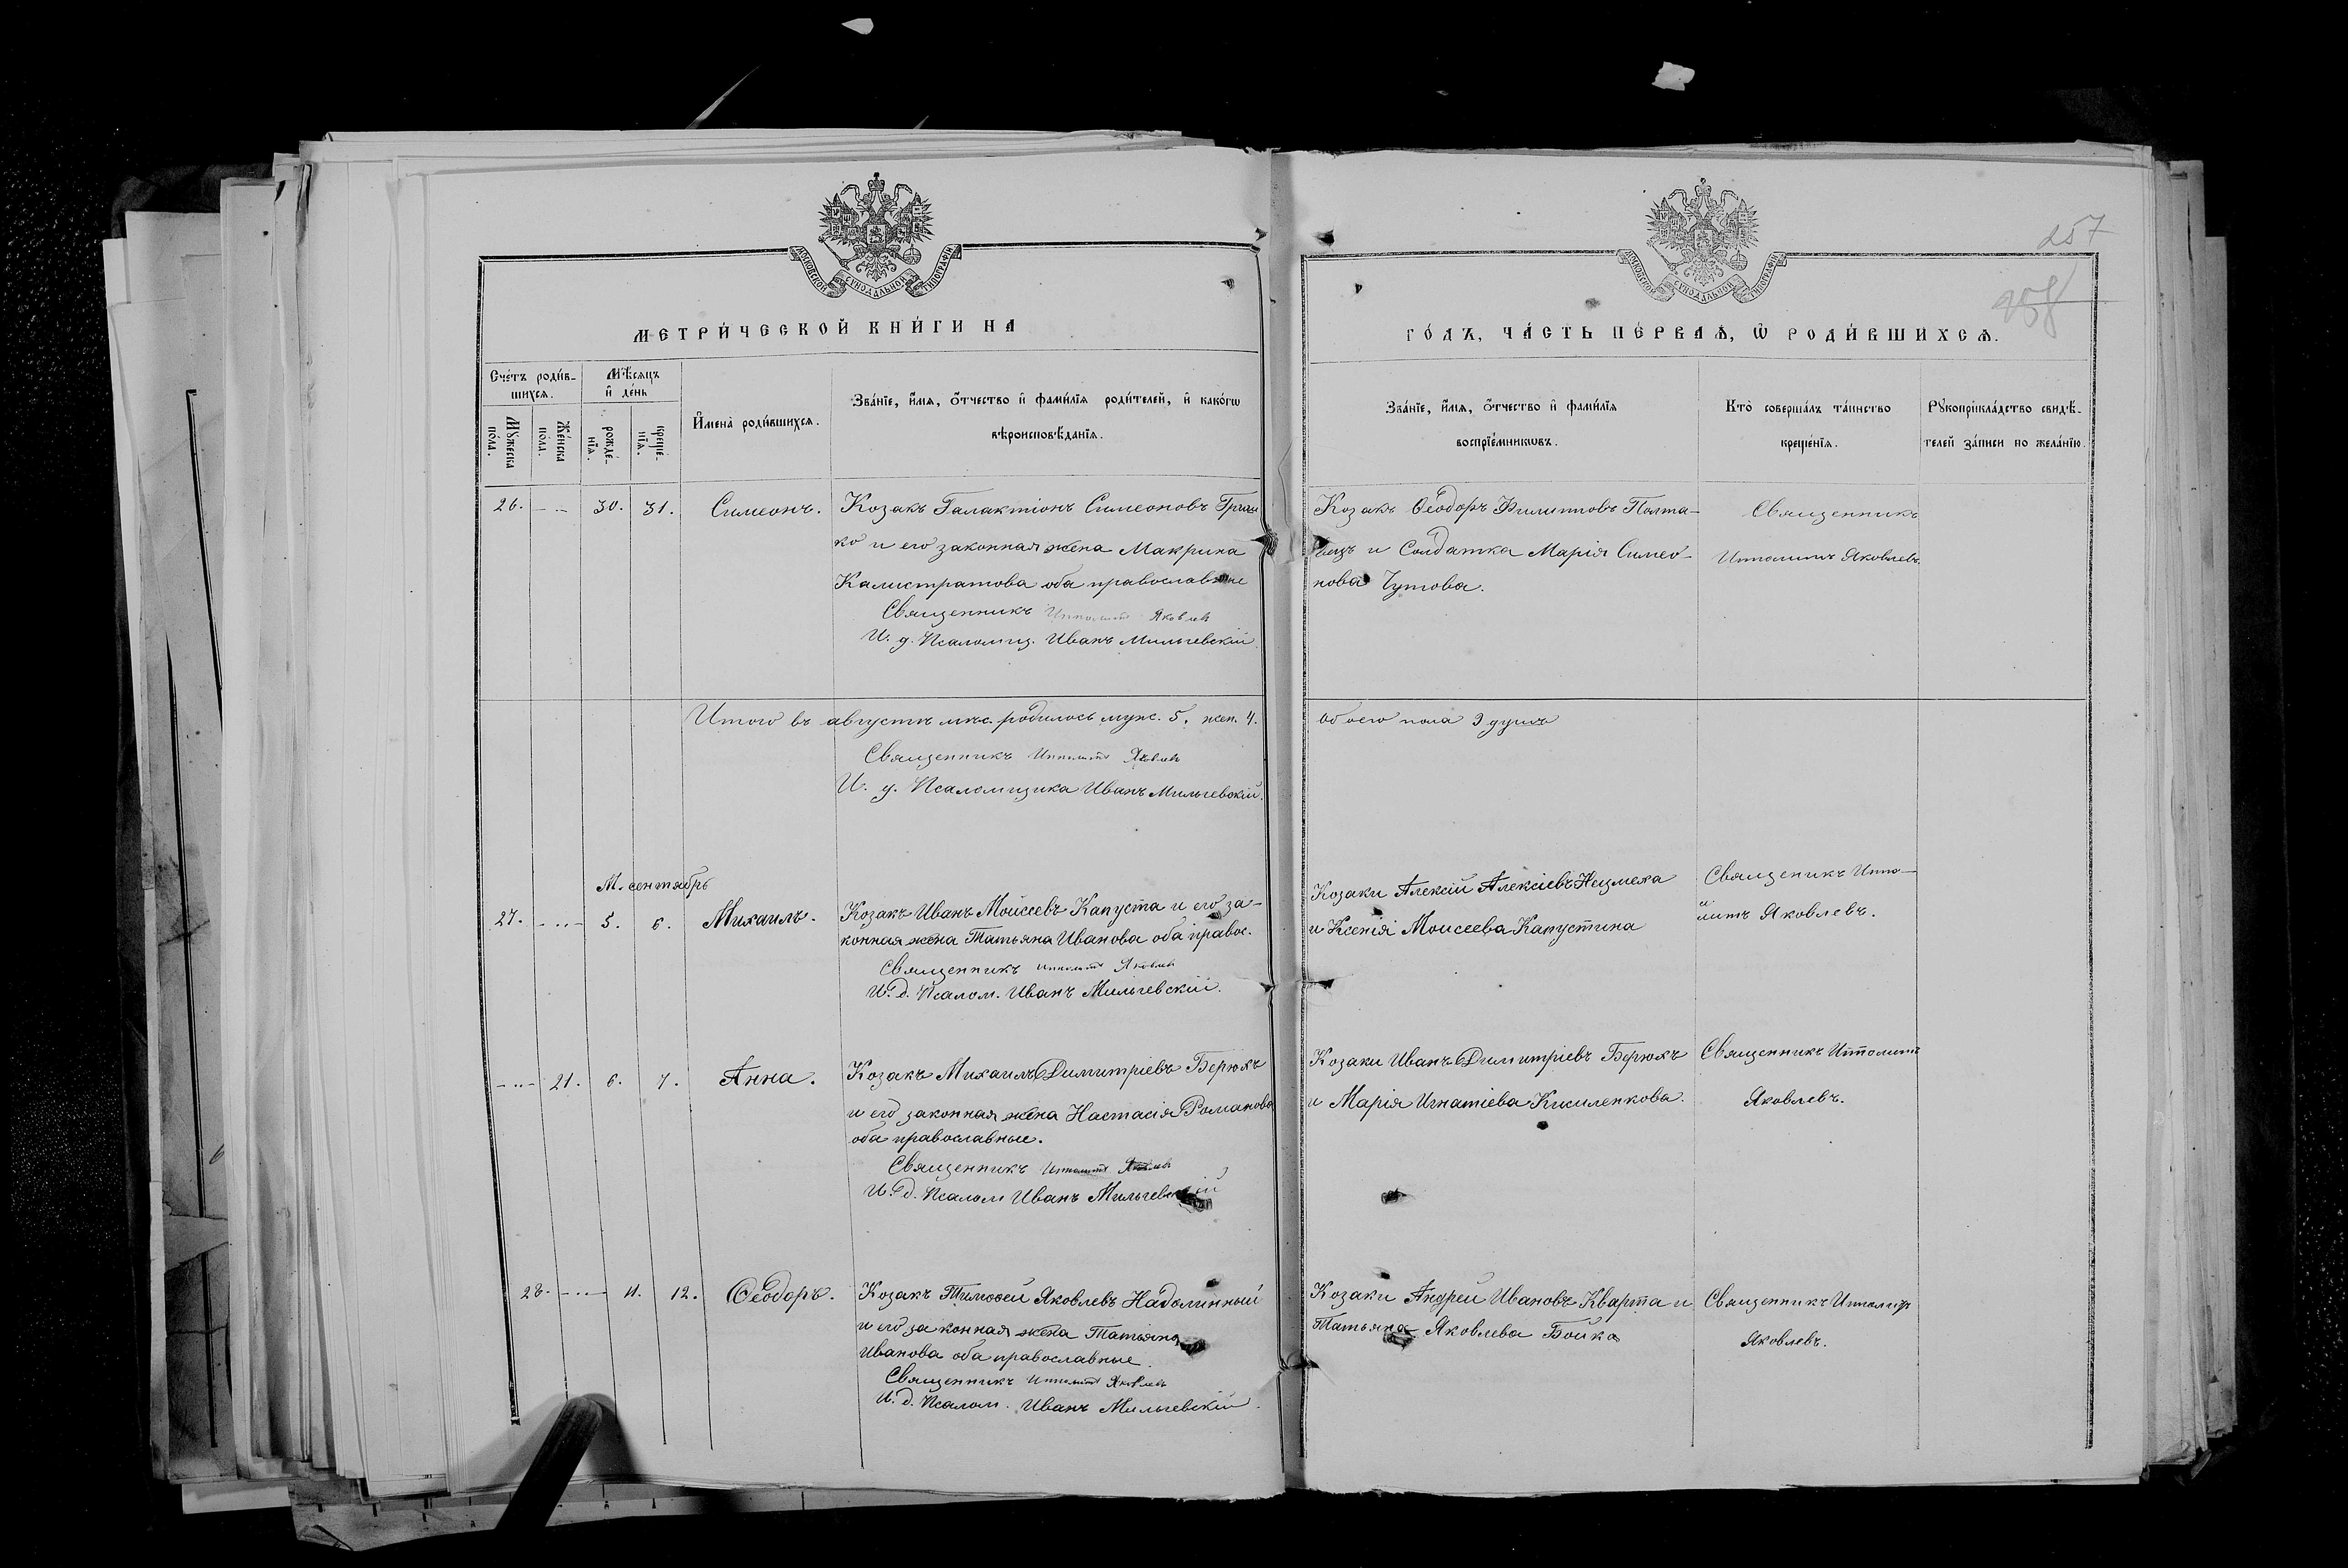 257
258
МОСКОВСКОЙ СѴНОДАЛЬНОЙ ТИПОГРАФІИ
МОСКОВСКОЙ СѴНОДАЛЬНОЙ ТИПОГРАФІИ
МЕТРИ́ЧЕСКОЙ КНИ́ГИ НА
ГО́ДЪ, ЧА́СТЬ ПЕ́РВАѦ, Ѽ РОДИ́ВШИХСѦ.
Сче́тъ роди́в-
шихсѧ.
Мꙋ́жеска по́ла.
Же́нска по́ла.
Мѣ́сѧцъ и҆ де́нь
рожде́-нїѧ.
креще́-нїѧ.
И҆мена̀ роди́вшихсѧ.
Зва́нїе, и҆́мѧ, ѻ҆́тчество и҆ фами́лїѧ роди́телей, и҆ како́гѡ
вѣроисповѣ́данїѧ.
Зва́нїе, и҆́мѧ, ѻ҆́тчество и҆ фами́лїѧ
воспрїе́мникѡвъ.
Кто̀ соверша́лъ та́инство
креще́нїѧ.
Рꙋкоприкла́дство свидѣ́-
телей за́писи по жела́нїю.
26. - - 30. 31. Симеонъ.
Козакъ Галактіонъ Симеоновъ
ко и его законная жена Макрина
Калистратова оба православные
Священникъ Ипполитъ Яковлевъ
И. д. Псаломщ. Иванъ Мильчевскій
Козакъ Ѳеодоръ Филипповъ Полта-
вецъ и Солдатка Марія Симео-
нова Чутова.
Священникъ
Ипполитъ Яковлевъ.
Итого въ августѣ мѣс. родилось муж. 5, жен. 4.
обоего пола 9 душъ
Священникъ Ипполитъ Яковлевъ
И. д. Псаломщика Иванъ Мильчевскій.
М. сентябрь
27. - .. - 5. 6. Михаилъ.
Козакъ Иванъ Моисеевъ Капуста и его за-
конная жена Татьяна Иванова оба правос.
Священникъ Ипполитъ Яковлевъ
И. д. Псалом. Иванъ Мильчевскій.
Козаки Алексій Алексіевъ
и Ксенія Моисеева Капустина
Священикъ Иппо-
литъ Яковлевъ.
- .. - 21. 6. 7. Анна.
Козакъ Михаилъ Димитріевъ Берюхъ
и его законная жена Настасія Романова
оба православные.
Священникъ Ипполитъ Яковлевъ
И. д. Псалом Иванъ Мильчевскій
Козаки Иванъ Димитріевъ Берюхъ
и Марія Игнатіева Кисиленкова.
Священникъ Ипполитъ
Яковлевъ.
28. - .. - 11. 12. Ѳеодоръ.
Козакъ Тимоѳей Яковлевъ Надолинный
и его законная жена Татіяна
Иванова оба православные.
Священникъ Ипполитъ Яковлевъ
И. д. Псалом. Иванъ Мильчевскій.
Козаки Андрей Ивановъ Кварта и
Татьяна Яковлева Бойко
Священникъ Ипполитъ
Яковлевъ.